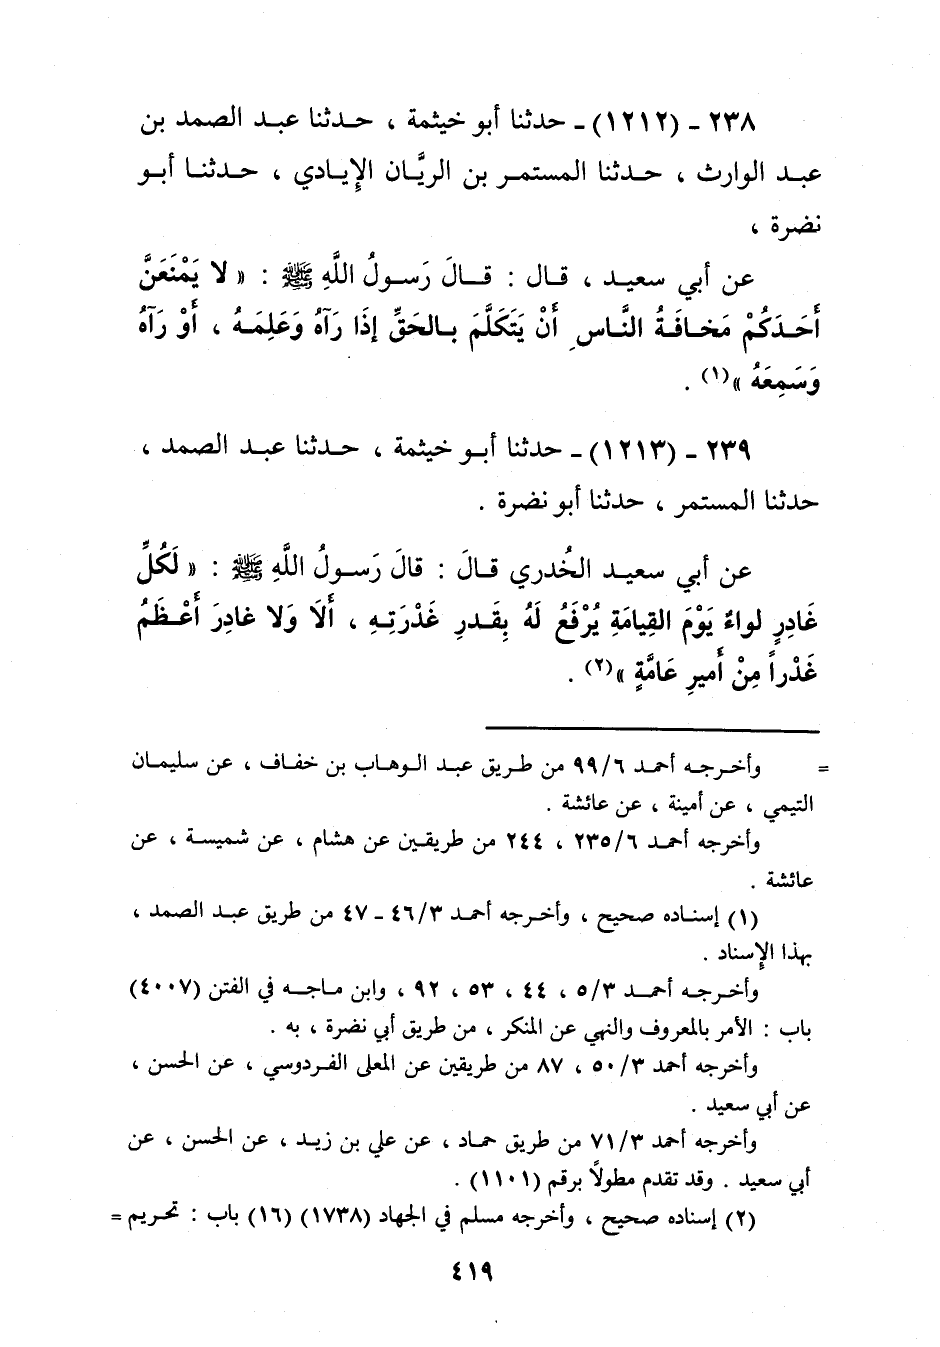 ٢٣٨ - (١٢١٢) - حدثنا أبو خيثمة ، حدثنا عبد الصمد بن
عبد الوارث ، حدثنا المستمر بن الريَّان الإيادي ، حدثنا أبو
نضرة ،
عن أبي سعيد ، قال : قالَ رَسولُ اللَّهِ ﷺ : « لا يَمْنَعَنَّ
أَحَدَكُمْ مَخافَةُ النَّاسِ أَنْ يَتَكَلَّمَ بِالحَقِّ إذَا رَآهُ وَعَلِمَهُ ، أَوْ رَآهُ
وَسَمِعَهُ »(١) .
٢٣٩ - (١٢١٣) - حدثنا أبو خيثمة ، حدثنا عبد الصمد ،
حدثنا المستمر ، حدثنا أبو نضرة .
عن أبي سعيد الخُدري قالَ : قالَ رَسولُ اللَّهِ ﷺ : « لَكُلِّ
غَادِرٍ لواءٌ يَوْمَ القِيامَةِ يُرْفَعُ لَهُ بِقَدرِ غَدْرَتِهِ ، أَلَا وَلا غادِرَ أَعْظَمُ
غَدْراً مِنْ أَميرِ عَامَّةٍ »(٢) .
= وأخرجه أحمد ٩٩/٦ من طريق عبد الوهاب بن خفاف ، عن سليمان
التيمي ، عن أمينة ، عن عائشة .
وأخرجه أحمد ٢٣٥/٦ ، ٢٤٤ من طريقين عن هشام ، عن شميسة ، عن
عائشة .
(١) إسناده صحيح ، وأخرجه أحمد ٤٦/٣ - ٤٧ من طريق عبد الصمد ،
بهذا الإسناد .
وأخرجه أحمد ٥/٣ ، ٤٤ ، ٥٣ ، ٩٢ ، وابن ماجه في الفتن (٤٠٠٧)
باب : الأمر بالمعروف والنهي عن المنكر ، من طريق أبي نضرة ، به .
وأخرجه أحمد ٥٠/٣ ، ٨٧ من طريقين عن المعلى الفردوسي ، عن الحسن ،
عن أبي سعيد .
وأخرجه أحمد ٧١/٣ من طريق حماد ، عن علي بن زيد ، عن الحسن ، عن
أبي سعيد . وقد تقدم مطولاً برقم (١١٠١) .
(٢) إسناده صحيح ، وأخرجه مسلم في الجهاد (١٧٣٨) (١٦) باب : تحريم =
٤١٩